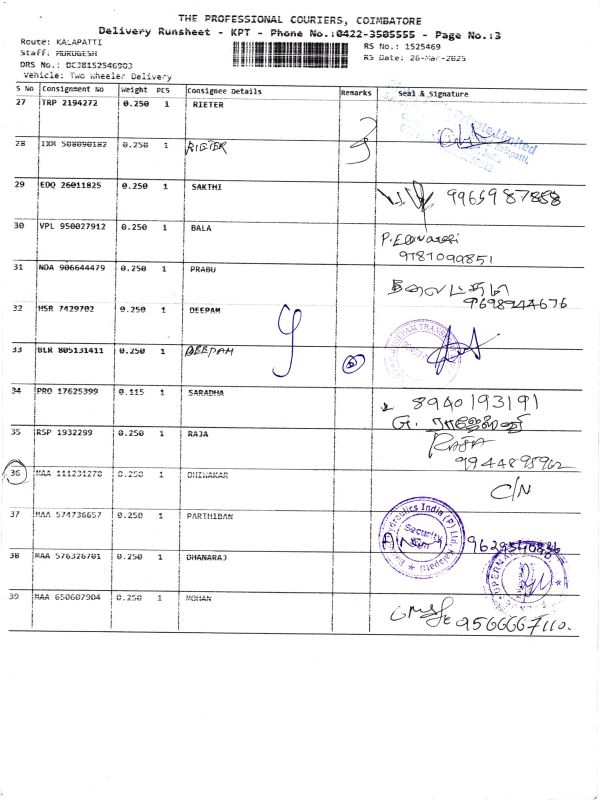 THE PROFESSIONAL COURIERS, COIMBATORE
Delivery Runsheet - KPT - Phone No.:0422-3505555 - Page No.:3
Route: KALAPATTI
Staff: MURUGESH
DRS No.: DCJB1S2546903
Vehicle: Two Wheeler Delivery
RS No.: 1525469
RS Date: 26-Mar-2025
S No Consignment No Weight PCS Consignee Details Remarks Seal & Signature
27 TRP 2194272 0.250 1 RIETER
28 IXM 508090182 0.250 1 RIETER
29 EDQ 26011825 0.250 1 SAKTHI 9965987888
30 VPL 950027912 0.250 1 BALA
9781099851
31 NDA 906644479 0.250 1 PRABU
9698944676
32 HSR 7429702 0.250 1 DEEPAM
33 BLR 805131411 0.250 1 DEEPAM
34 PRO 17625399 0.115 1 SARADHA 8940193191
35 RSP 1932299 0.250 1 RAJA
RAJA
9944895962
36 MAA 111231278 0.250 1 DHINAKAR C/N
37 MAA 574736657 0.250 1 PARTHIBAN
Hydraulics India (P) Ltd. Kalapatti
Security
38 MAA 576326701 0.250 1 DHANARAJ
39 MAA 650607904 0.250 1 MOHAN 9566667110.